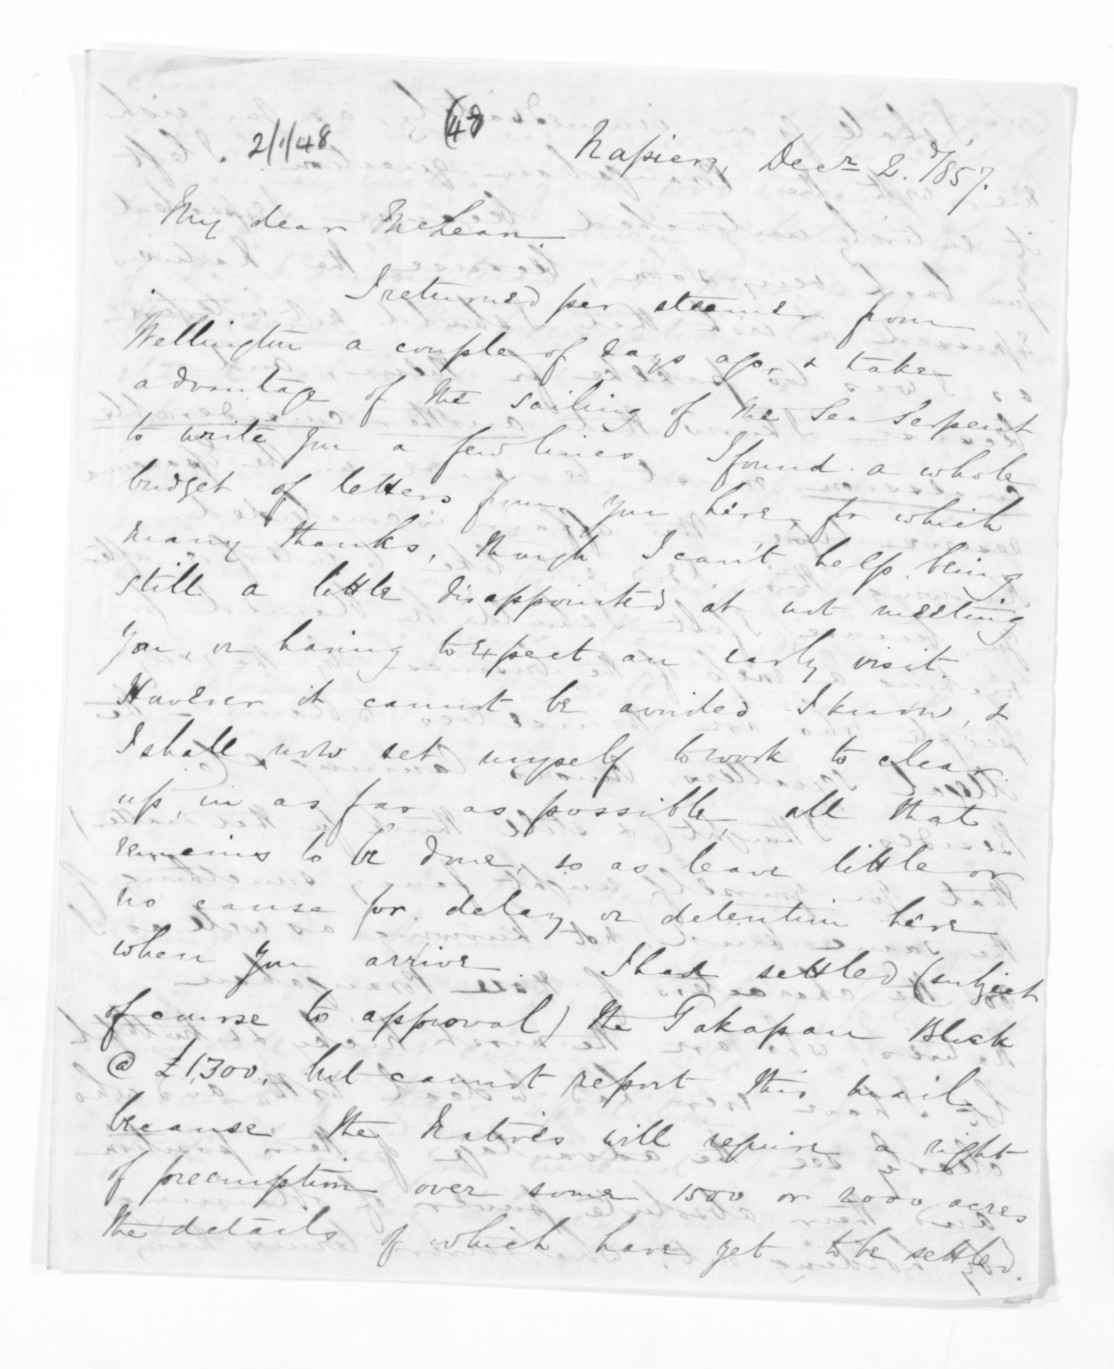 2/1/48
(48
Napier, Decr. 2d/857.
My dear McLean,
I returned per steamer from
Wellington a couple of days ago, & take
advantage of the sailing of the Sea Serpent
to write you a few lines. I found a whole
budget of letters from you here, for which
many thanks, though I can't help being
still a little disappointed at not meeting
you, or having to expect an early visit.
However it cannot be avoided I know, &
I shall now set myself to work to clear
up, in as far as possible, all that
remains to be done, so as leave little or
no cause for delay or detention here
when you arrive. I had settled (subject
of course to approval) the Takapau Block
@ £1,300, but cannot report this mail
because the Natives will require a right
of preemption over some 1500 or 2000 acres
the details of which have yet to be settled.